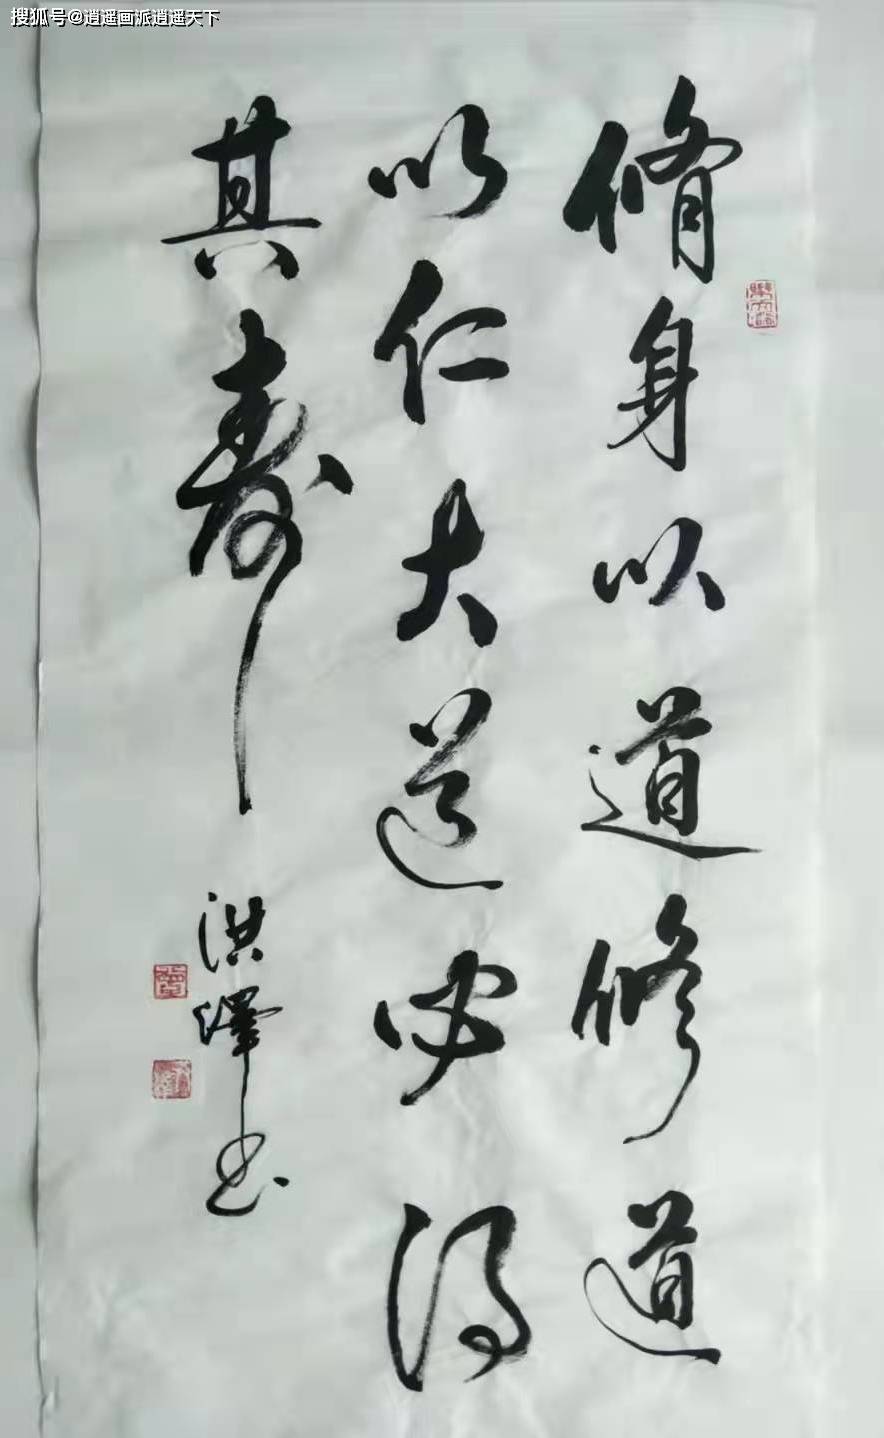 搜狐号@逍遥画派逍遥天下
脩身以道修道
以仁大道必得
其寿
洪澤书